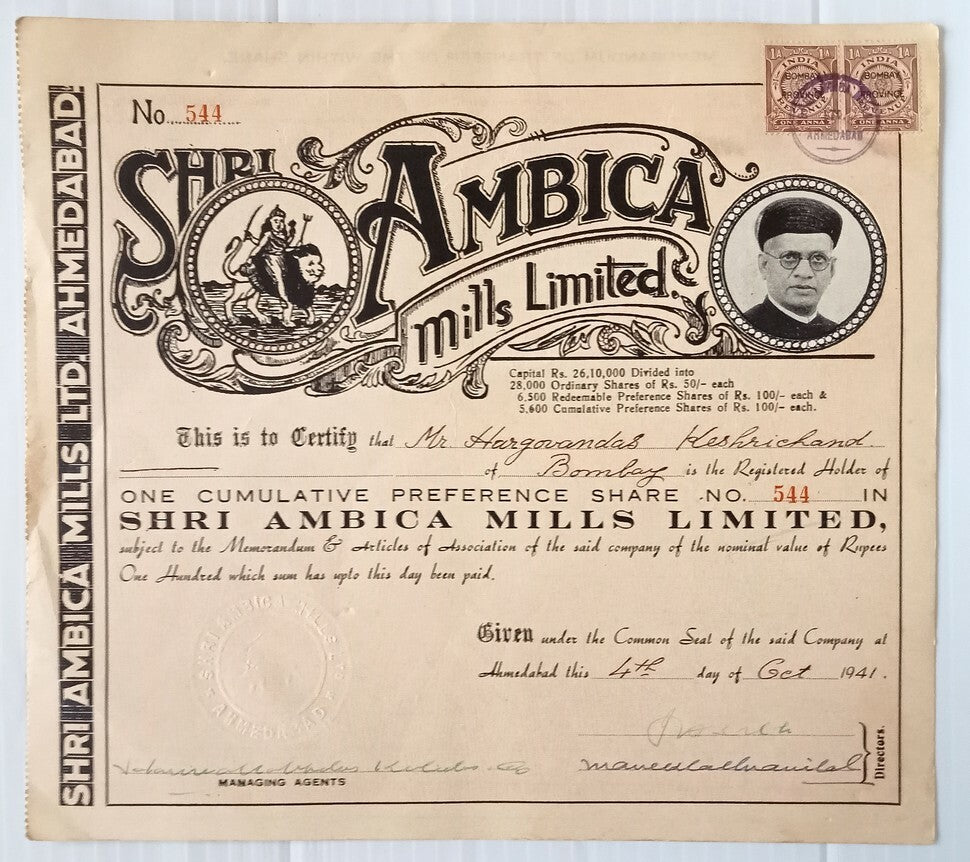 No. 544
1A INDIA 1A
BOMBAY
PROVINCE
REVENUE
ONE ANNA
1A INDIA 1A
BOMBAY
PROVINCE
REVENUE
ONE ANNA
AHMEDABAD
SHRI AMBICA
Mills Limited.
Capital Rs. 26,10,000 Divided into
28,000 Ordinary Shares of Rs. 50/- each
6,500 Redeemable Preference Shares of Rs. 100/- each &
5,600 Cumulative Preference Shares of Rs. 100/- each.
This is to Certify that Mr. Hargovandas Keshrichand.
of Bombay is the Registered Holder of
ONE CUMULATIVE PREFERENCE SHARE NO. 544 IN
SHRI AMBICA MILLS LIMITED,
subject to the Memorandum & Articles of Association of the said company of the nominal value of Rupees
One Hundred which sum has upto this day been paid.
Given under the Common Seal of the said Company at
Ahmedabad this 4th day of Oct 1941.
SHRI AMBICA MILLS LTD.
AHMEDABAD
Directors.
MANAGING AGENTS
SHRI AMBICA MILLS LTD. AHMEDABAD.